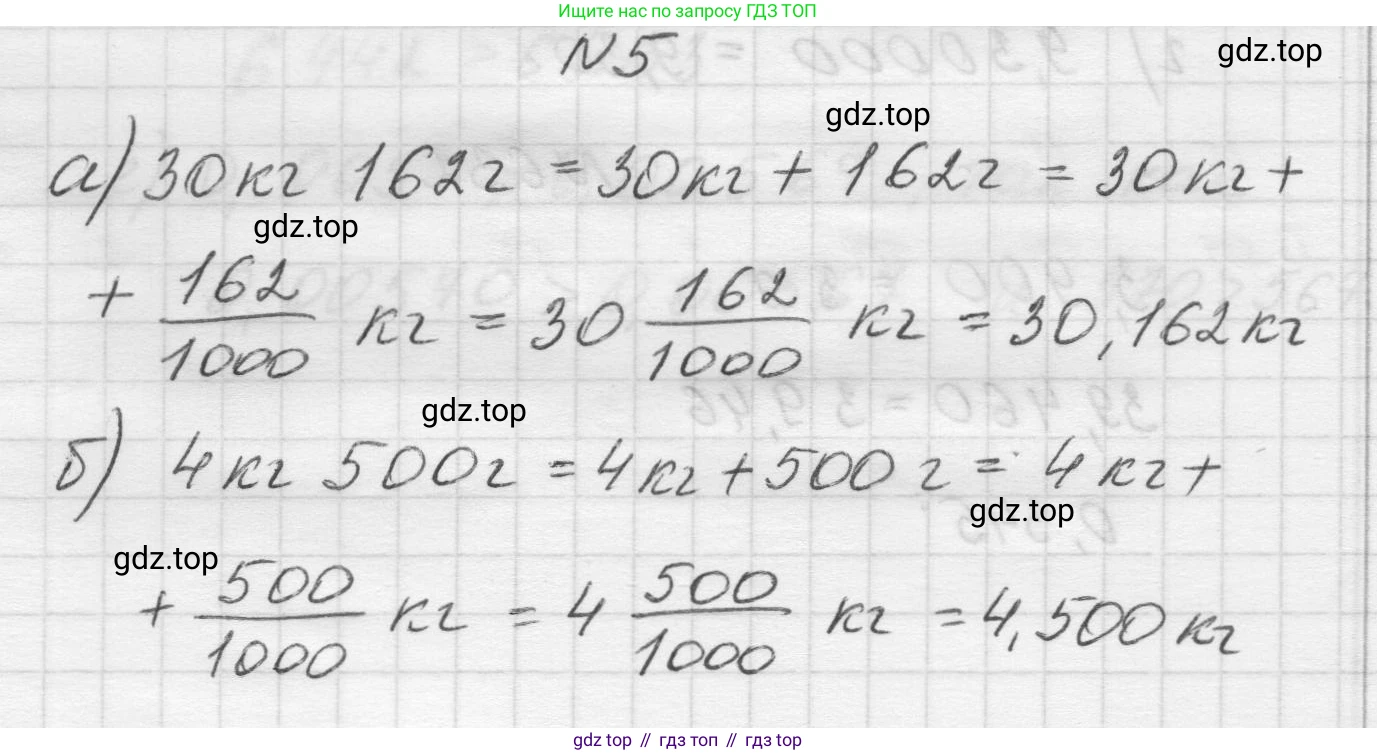 Ищите нас по запросу ГДЗ ТОП
N5
gdz.top
gdz.top
а) 30 кг 162 г = 30 кг + 162 г = 30 кг +
gdz.top
+ 162/1000 кг = 30 162/1000 кг = 30,162 кг
gdz.top
б) 4 кг 500 г = 4 кг + 500 г = 4 кг +
gdz.top
gdz.top
+ 500/1000 кг = 4 500/1000 кг = 4,500 кг
gdz top // гдз топ // gdz top